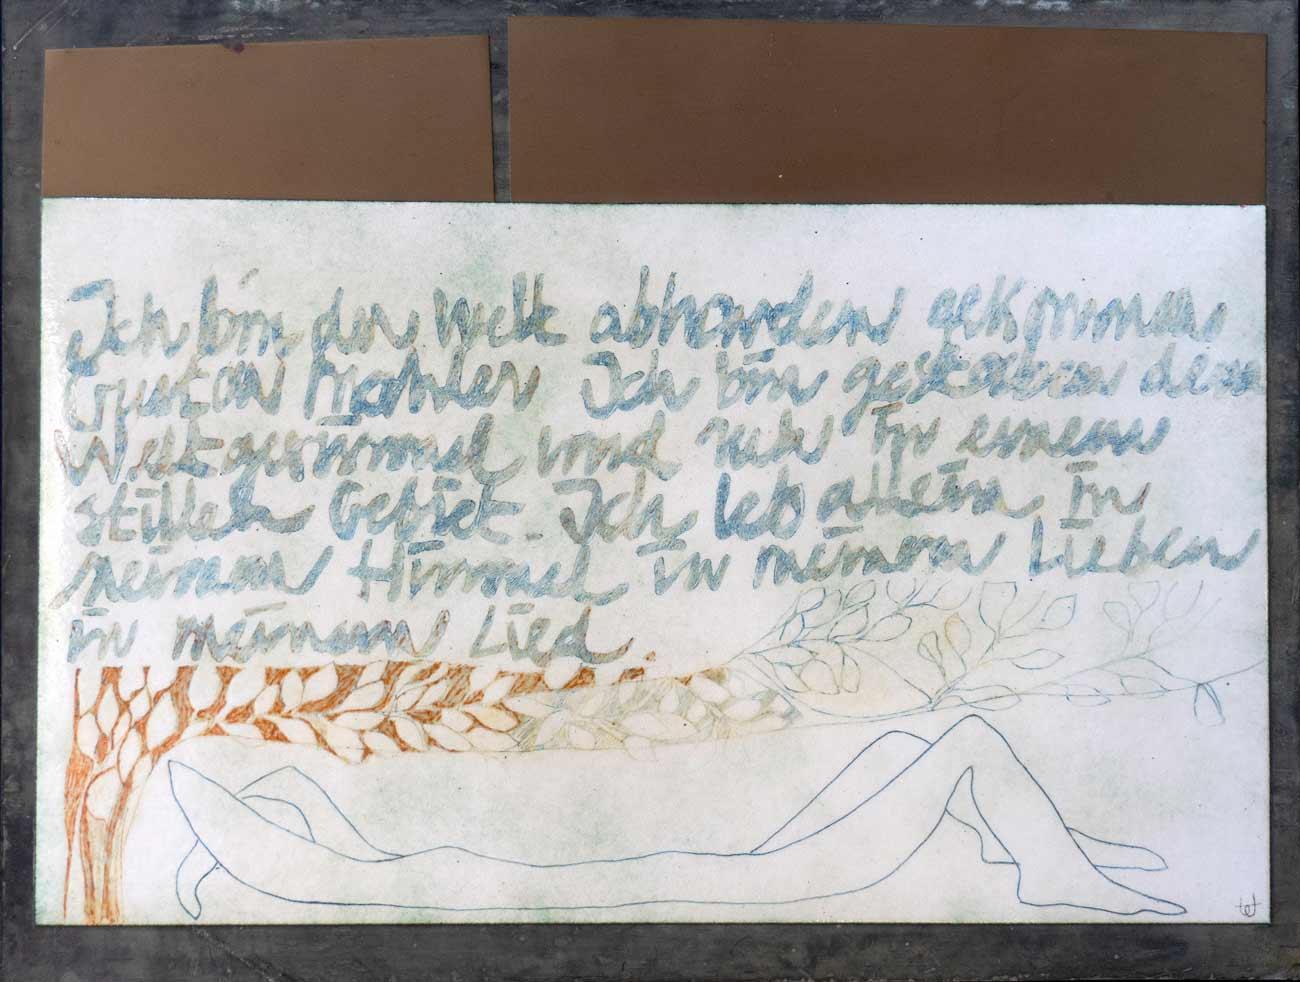 Ich bin der Welt abhanden gekommen
Gustav Mahler Ich bin gestorben dem
Weltgewimmel und ruh in einem
stillen Gebiet. Ich leb allein in
meinem Himmel in meinem Lieben
in meinem Lied.